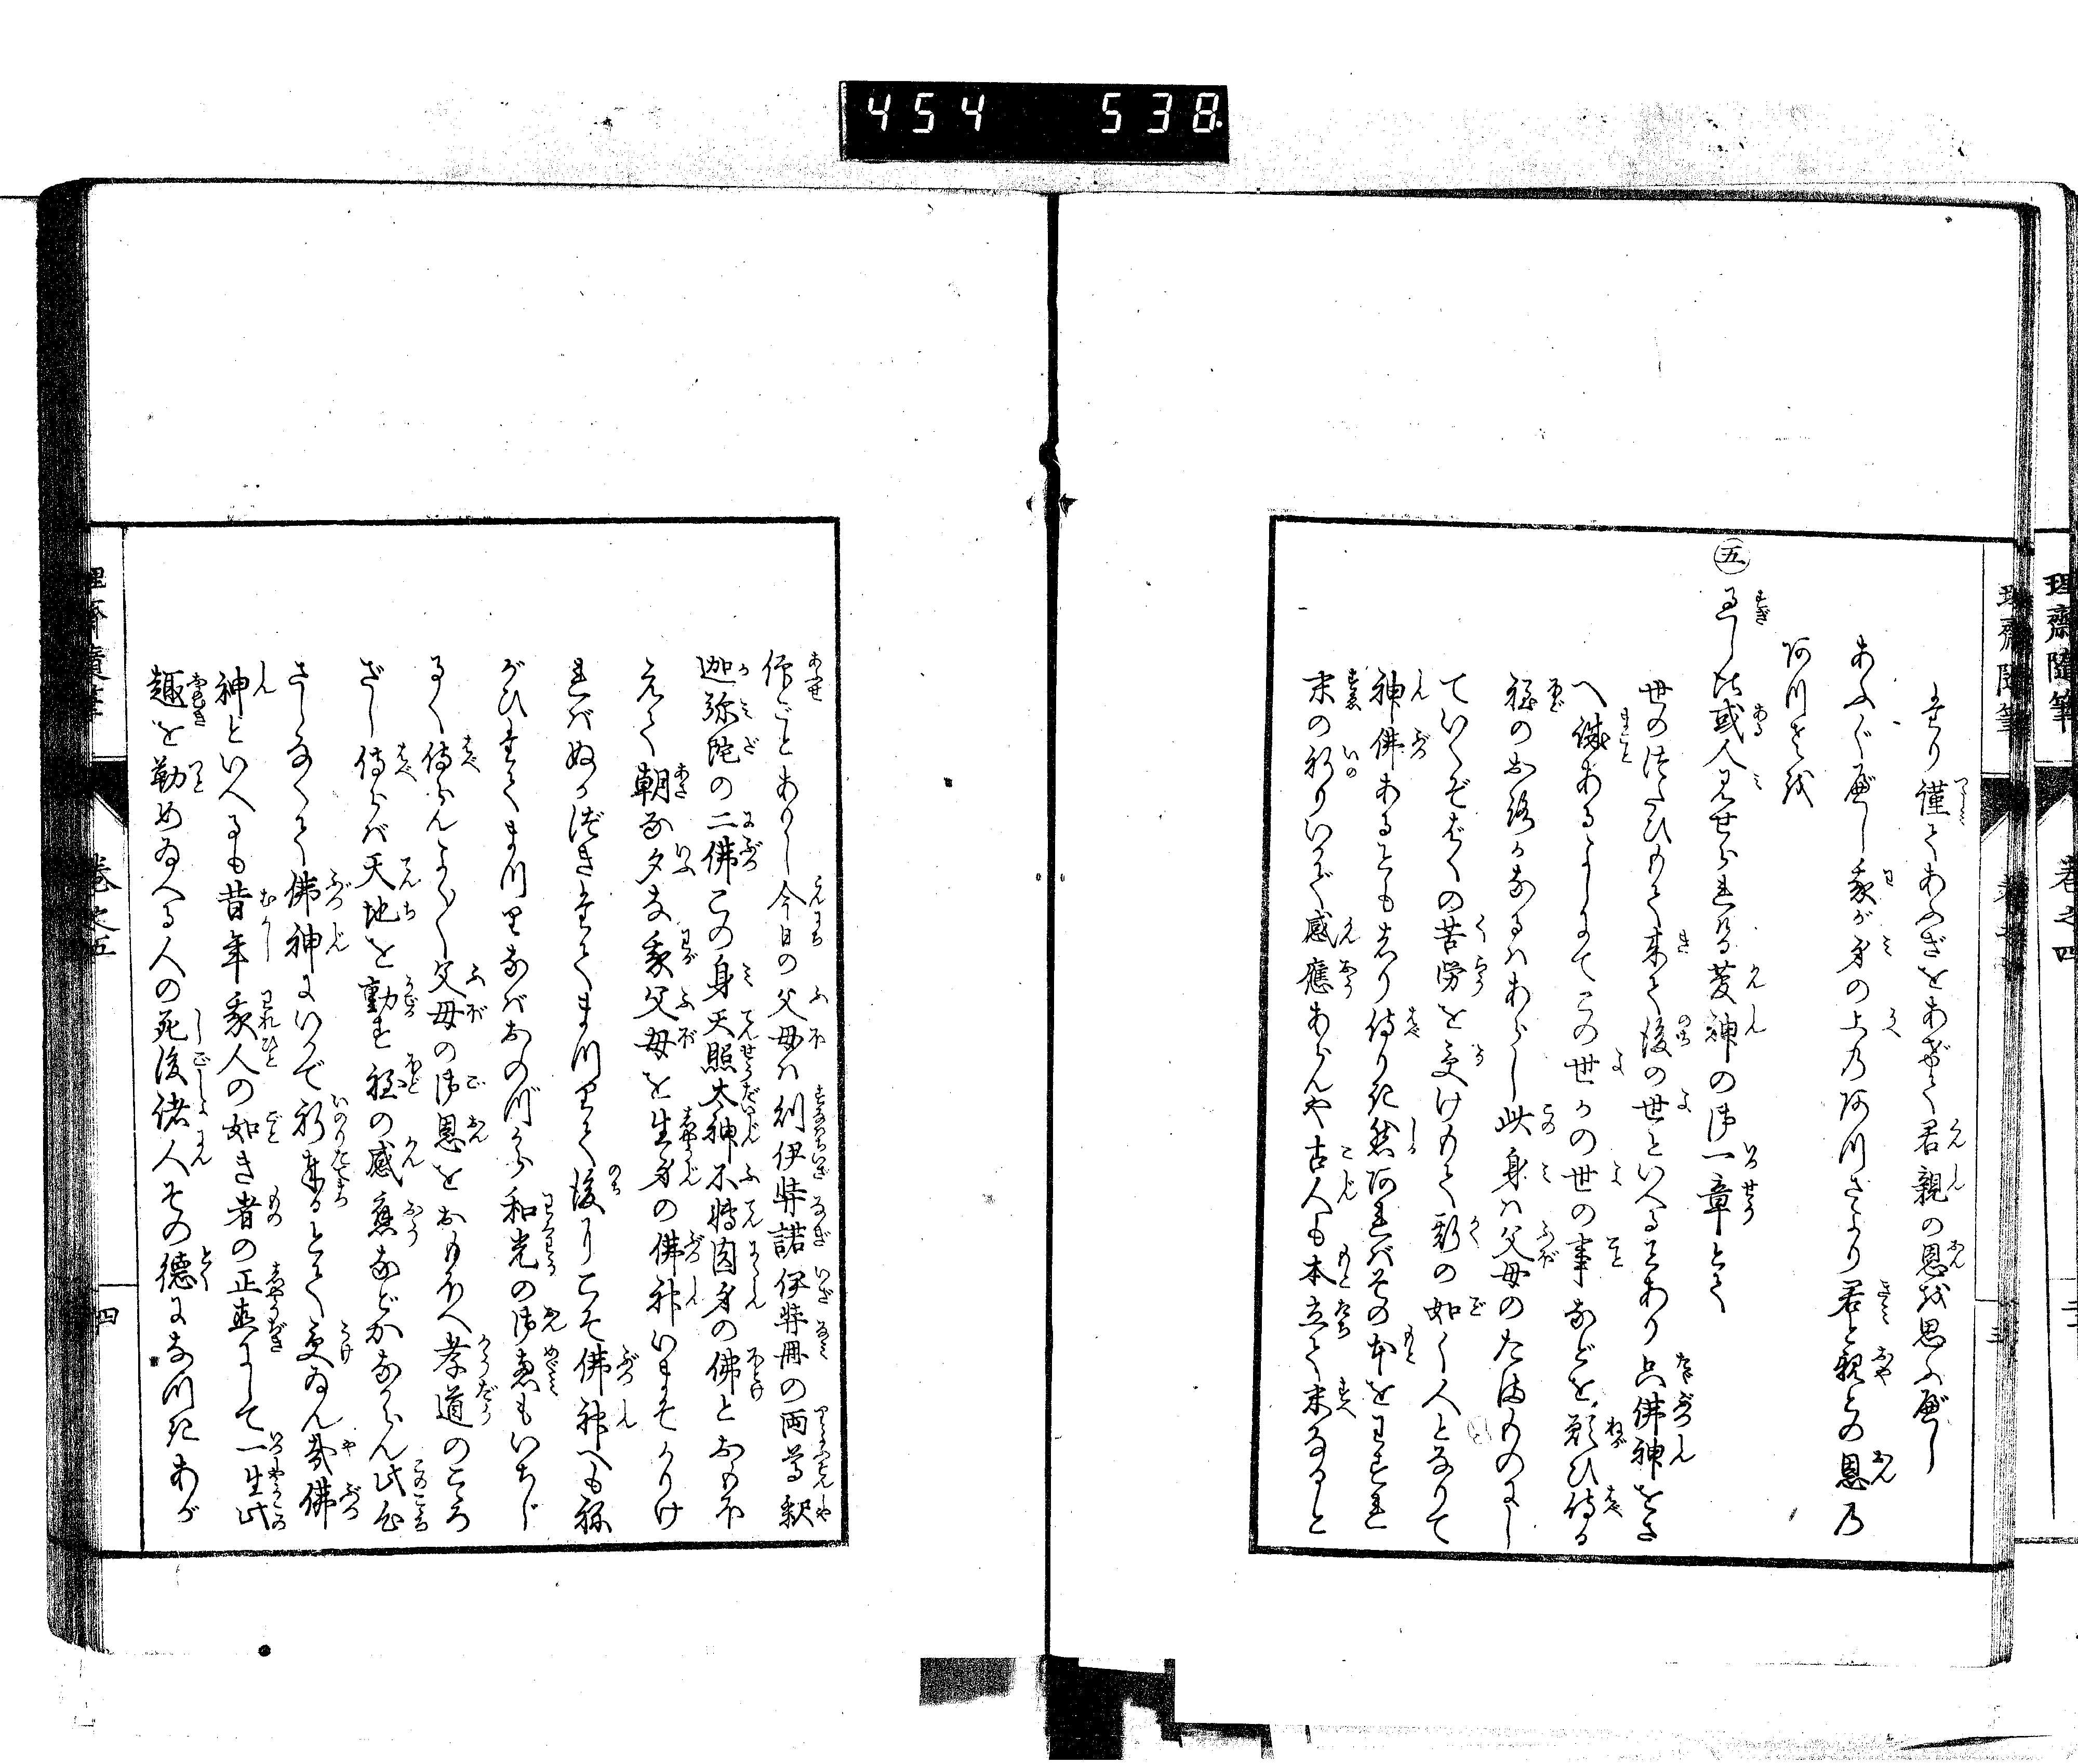 454 538
理齋隨筆 巻之四
理齋隨筆
たり謹てあふぎをあぎて君親の恩を思ふべし
あふぐべし我が身の上のあつさより君と親との恩の
あつさを
五 過し比或人見せられたる菱神の御一章とて
世のたとひもて来て後の世といへる事あり只佛神をさ
へ誠あるよしにてこの世かの世の事などを願ひ侍る
程のおろかなるはあらし此身は父母のたまものにし
ていくそばくの苦労を受けもて斯の如く人となりて
神佛あるとも知り侍りき然あればその本をわすれ
末の祈りいかで感應あらんや古人も本立て末なると
作ごとありし今日の父母は則伊弉諾伊弉冊の両尊釈
迦弥陀の二佛この身天照太神不轉肉身の佛とおもほ
えて朝な夕な我父母を生身の佛神いますかりけ
ればぬかづきたてまつりて後りこそ佛神へも祢
がひたてまつりなばおのづから和光の御恵もいちじ
るく侍らんよくよく父母の御恩をおもほへ孝道のこころ
ざし侍らば天地を動す程の感應などかなからん此心
ざしなくて佛神にいかで祈奉るとて受ゐん哉佛
神といへるも昔年我人の如き者の正直にして一生此
趣を勤めゐへる人の死後諸人その徳になつきあが
巻之五
四